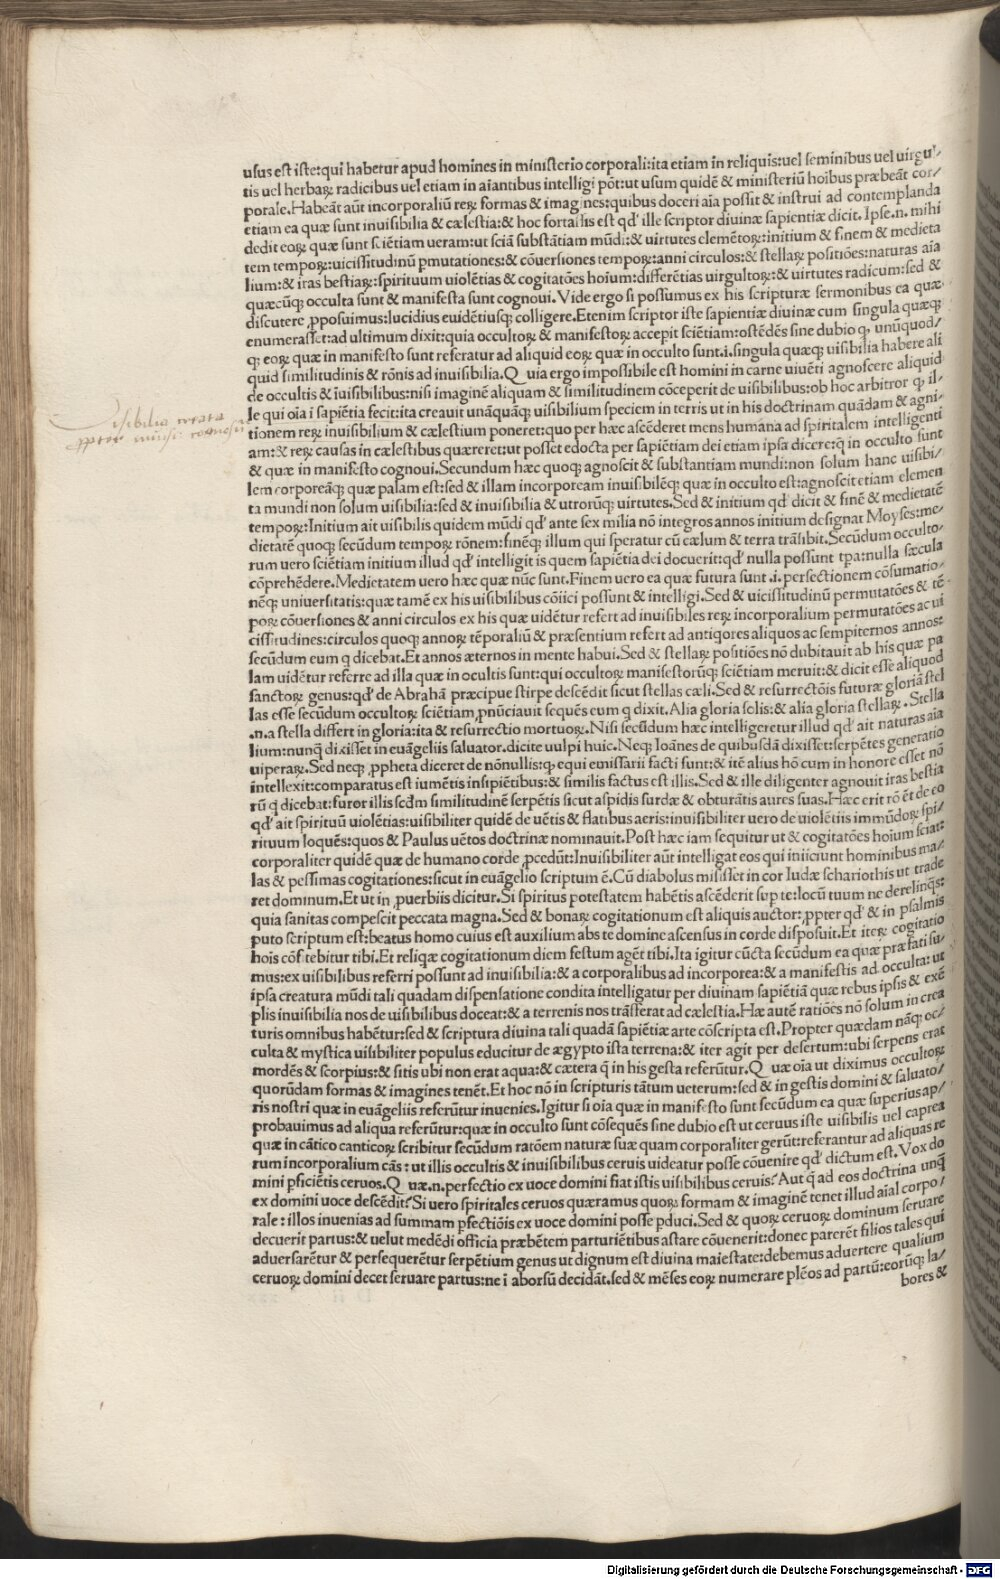 usus est iste:qui habetur apud homines in ministerio corporali:ita etiam in reliquis:uel seminibus uel uirgul/
tis uel herbaꝝ radicibus uel etiam in aiantibus intelligi põt:ut usum quidẽ & ministeriũ hoibus præbeãt cor/
porale.Habeãt aũt incorporaliũ reꝝ formas & imagines:quibus doceri aia possit & instrui ad contemplanda
etiam ea quæ sunt inuisibilia & cælestia:& hoc fortassis est qd' ille scriptor diuinæ sapientiæ dicit. Ipse.n. mihi
dedit eoꝝ quæ sunt sciẽtiam ueram:ut sciã substãtiam mũdi:& uirtutes elemẽtoꝝ:initium & finem & medieta
tem tempoꝝ:uicissitudinũ pmutationes:& cõuersiones tempoꝝ:anni circulos:& stellaꝝ positiões:naturas aia
lium:& iras bestiaꝝ:spirituum uiolẽtias & cogitatões hoium:differẽtias uirgultoꝝ:& uirtutes radicum:sed &
quæcũꝗ occulta sunt & manifesta sunt cognoui. Vide ergo si possumus ex his scripturæ sermonibus ea quæ
discutere ꝓposuimus:lucidius euidẽtiusꝗ colligere.Etenim scriptor iste sapientiæ diuinæ cum singula quæꝗ
enumerasset:ad ultimum dixit:quia occultoꝝ & manifestoꝝ accepit sciẽtiam:ostẽdẽs sine dubio ꝙ unũquod/
ꝗ eoꝝ quæ in manifesto sunt referatur ad aliquid eoꝝ quæ in occulto sunt.i.singula quæꝗ uisibilia habere ali
quid similitudinis & rõnis ad inuisibilia.Q uia ergo impossibile est homini in carne uiuẽti agnoscere aliquid
de occultis & ĩuisibilibus:nisi imaginẽ aliquam & similitudinem cõceperit de uisibilibus:ob hoc arbitror ꝙ il/
le qui oĩa ĩ sapiẽtia fecit:ita creauit unãquãꝗ uisibilium speciem in terris ut in his doctrinam quãdam & agni/
tionem reꝝ inuisibilium & cælestium poneret:quo per hæc ascẽderet mens humana ad spiritalem intelligenti
am:& reꝝ causas in cælestibus quæreret:ut posset edocta per sapiẽtiam dei etiam ipsa dicere:q̃ in occulto sunt
& quæ in manifesto cognoui.Secundum hæc quoꝗ agnoscit & substantiam mundi:non solum hanc uisibi/
lem corporeãꝗ quæ palam est:sed & illam incorpoream inuisibilẽꝗ quæ in occulto est:agnoscit etiam elemen
ta mundi non solum uisibilia:sed & inuisibilia & utrorũꝗ uirtutes.Sed & initium qd' dicit & finẽ & medietatẽ
tempoꝝ:Initium ait uisibilis quidem mũdi qd' ante sex milia nõ integros annos initium designat Moyses:me/
dietatẽ quoꝗ secũdum tempoꝝ rõnem:finẽꝗ illum qui speratur cũ cælum & terra trãsibit.Secũdum occulto/
rum uero sciẽtiam initium illud qd' intelligit is quem sapiẽtia dei docuerit:qd' nulla possunt tpa:nulla sæcula
cõprehẽdere.Medietatem uero hæc quæ nũc sunt.Finem uero ea quæ futura sunt .i. perfectionem cõsumatio/
nẽꝗ uniuersitatis:quæ tamẽ ex his uisibilibus cõiici possunt & intelligi.Sed & uicissitudinũ permutatões & tẽ
poꝝ cõuersiones & anni circulos ex his quæ uidẽtur refert ad inuisibiles reꝝ incorporalium permutatões ac ui
cissitudines:circulos quoꝗ annoꝝ tẽporaliũ & præsentium refert ad antiq̃ores aliquos ac sempiternos annos:
secũdum eum q dicebat.Et annos æternos in mente habui.Sed & stellaꝝ positiões nõ dubitauit ab his quæ pa
lam uidẽtur referre ad illa quæ in ocultis sunt:qui occultoꝝ manifestorũꝗ sciẽtiam meruit:& dicit esse aliquod
sanctoꝝ genus:qd' de Abrahã præcipue stirpe descẽdit sicut stellas cæli.Sed & resurrectõis futuræ gloriã stel
las esse secũdum occultoꝝ sciẽtiam ꝓnũciauit sequẽs eum q dixit.Alia gloria solis:& alia gloria stellaꝝ. Stella
.n.a stella differt in gloria:ita & resurrectio mortuoꝝ.Nisi secũdum hæc intelligeretur illud qd' ait naturas aia
lium:nunq̃ dixisset in euãgeliis saluator.dicite uulpi huic.Neꝗ Ioãnes de quibusdã dixisset:serpẽtes generatio
uiperaꝝ.Sed neꝗ ꝓpheta diceret de nõnullis:ꝙ equi emissarii facti sunt:& itẽ alius hõ cum in honore esset nõ
intellexit:comparatus est iumẽtis insipiẽtibus:& similis factus est illis.Sed & ille diligenter agnouit iras bestia
rũ q dicebat:furor illis scđm similitudinẽ serpẽtis sicut aspidis surdæ & obturãtis aures suas.Hæc erit rõ ẽt de eo
qd' ait spirituũ uiolẽtias:uisibiliter quidẽ de uẽtis & flatibus aeris:inuisibiliter uero de uiolẽtiis immũdoꝝ spi/
rituum loquẽs:quos & Paulus uẽtos doctrinæ nominauit.Post hæc iam sequitur ut & cogitatões hoium sciat:
corporaliter quidẽ quæ de humano corde ꝓcedũt:Inuisibiliter aũt intelligat eos qui iniiciunt hominibus ma/
las & pessimas cogitationes:sicut in euãgelio scriptum ẽ.Cũ diabolus misisset in cor Iudæ schariothis ut trade
ret dominum.Et ut in ꝓuerbiis dicitur.Si spiritus potestatem habẽtis ascẽderit sup te:locũ tuum ne derelinq̃s:
quia sanitas compescit peccata magna.Sed & bonaꝝ cogitationum est aliquis auctor:ꝓpter qd' & in psalmis
puto scriptum est:beatus homo cuius est auxilium abs te domine ascensus in corde disposuit.Et iteꝝ cogitatio
hoĩs cõfitebitur tibi.Et reliq̃æ cogitationum diem festum agẽt tibi.Ita igitur cũcta secũdum ea quæ præfati su/
mus:ex uisibilibus referri possunt ad inuisibilia:& a corporalibus ad incorporea:& a manifestis ad occulta:ut
ipsa creatura mũdi tali quadam dispensatione condita intelligatur per diuinam sapiẽtiã quæ rebus ipsis & exẽ
plis inuisibilia nos de uisibilibus doceat:& a terrenis nos trãsferat ad cælestia.Hæ autẽ ratiões nõ solum in crea
turis omnibus habẽtur:sed & scriptura diuina tali quadã sapiẽtiæ arte cõscripta est.Propter quædam nãꝗ oc/
culta & mystica uisibiliter populus educitur de ægypto ista terrena:& iter agit per desertum:ubi serpens erat
mordẽs & scorpius:& sitis ubi non erat aqua:& cætera q̃ in his gesta referũtur.Q uæ oĩa ut diximus occultoꝝ
quorũdam formas & imagines tenẽt.Et hoc nõ in scripturis tãtum ueterum:sed & in gestis domini & saluato/
ris nostri quæ in euãgeliis referũtur inuenies.Igitur si oĩa quæ in manifesto sunt secũdum ea quæ superius ap/
probauimus ad aliqua referũtur:quæ in occulto sunt cõsequẽs sine dubio est ut ceruus iste uisibilis uel caprea
quæ in cãtico canticoꝝ scribitur secũdum ratõem naturæ suæ quam corporaliter gerũt:referantur ad aliquas re
rum incorporalium cãs: ut illis occultis & inuisibilibus ceruis uideatur posse cõuenire qd' dictum est. Vox do
mini pficiẽtis ceruos.Q uæ.n.perfectio ex uoce domini fiat istis uisibilibus ceruis? Aut q̃ ad eos doctrina unq̃
ex domini uoce descẽdit? Si uero spiritales ceruos quæramus quoꝝ formam & imaginẽ tenet illud aial corpo/
rale: illos inuenias ad summam pfectiõis ex uoce domini posse pduci.Sed & quoꝝ ceruoꝝ dominum seruare
decuerit partus:& uelut medẽdi officia præbẽtem parturiẽtibus astare cõuenerit:donec parerẽt filios tales qui
aduersarẽtur & persequerẽtur serpẽtium genus ut dignum est diuina maiestate:debemus aduertere qualium
ceruoꝝ domini decet seruare partus:ne ĩ aborsũ decidãt.sed & mẽses eoꝝ numerare plẽos ad partũ:eorũꝗ la/
bores &
Visibilia creata
ꝓpter inuisi: cognosc
Digitalisierung gefördert durch die Deutsche Forschungsgemeinschaft - DFG